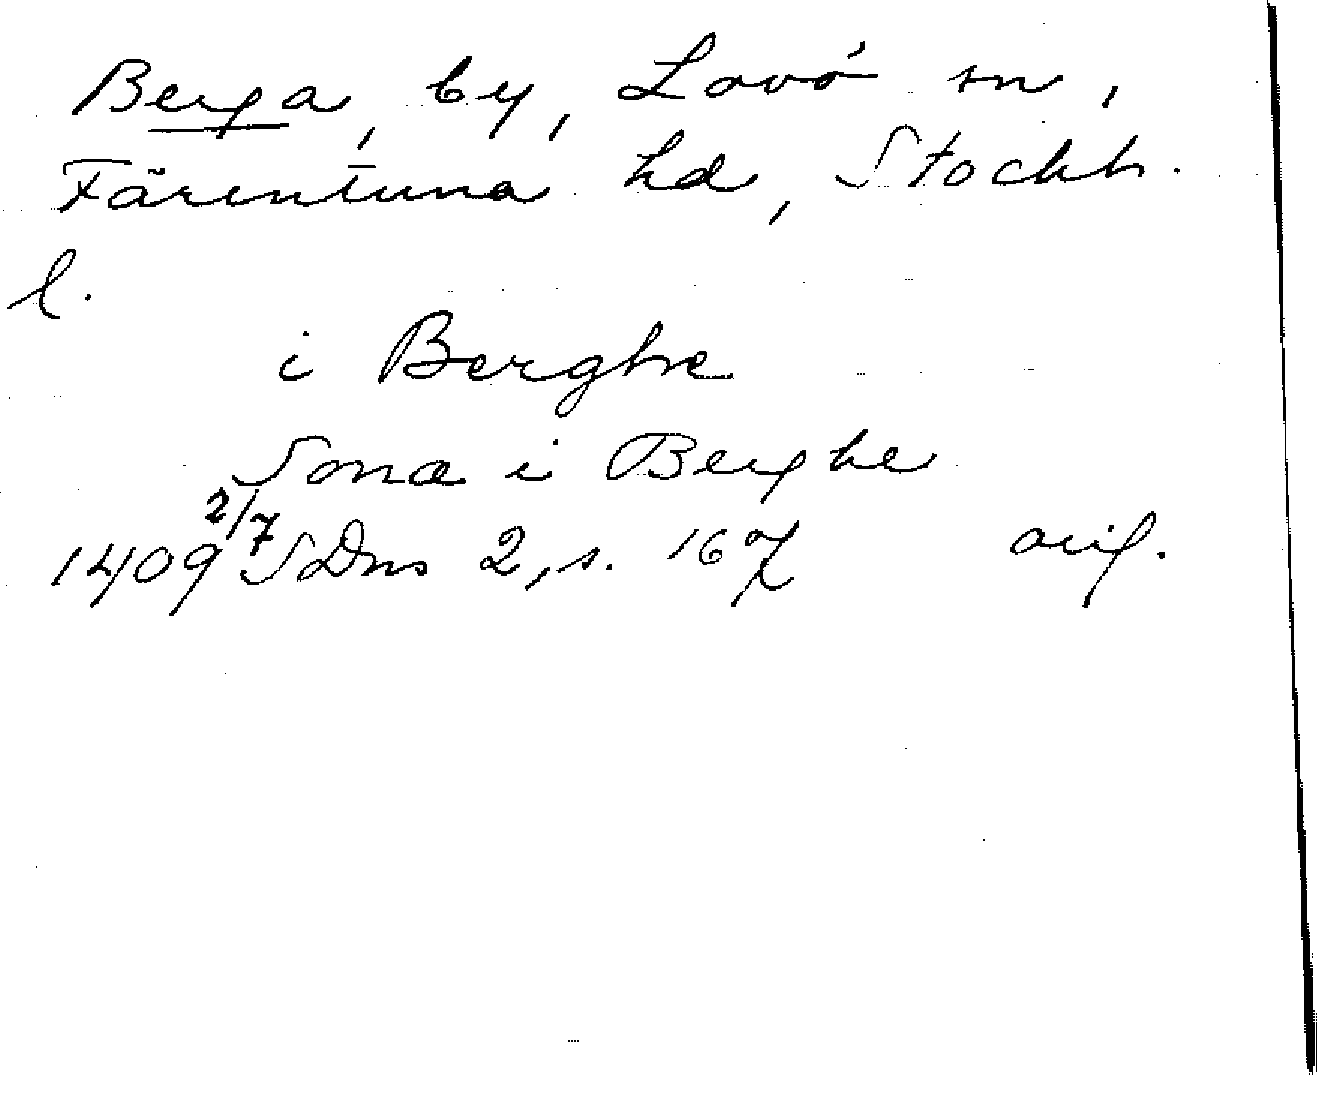 Berga, by, Lovö sn,
Färentuna hd, Stockh.
l.
i Berghe
Sona i Berghe
1409 2/7 SDns 2, s. 167 orig.